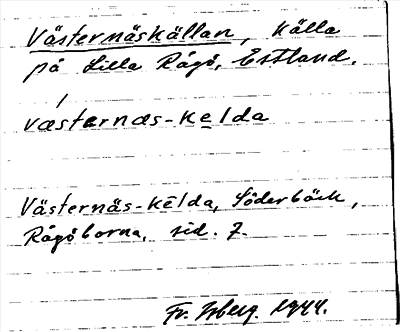 Västernäskällan, källa
på Lilla Rågö, Estland.
væsternæs-kelda
Västernäs-kēlda, Söderbäck,
Rågöborna, sid. 7
Fr. Isberg. 1944.